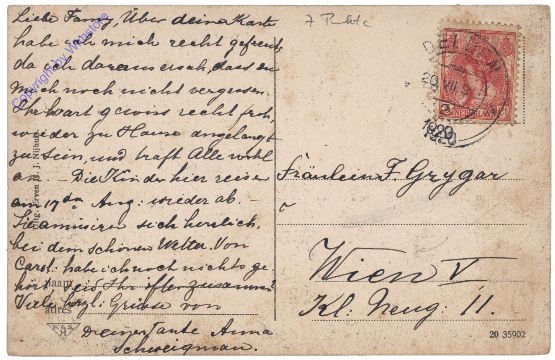 Liebe Fanny, Über deine Karte
habe ich mich recht gefreut,
da ich daraus ersah, dass du
mich noch nicht vergessen.
Ihr wart gewiss recht froh,
wieder zu Hause angelangt
zu sein, und traft Alle wohl
an. – Die Kinder hier reisen
am 17ten Aug. wieder ab. –
Sie amüsiren sich herrlich,
bei dem schönen Wetter. Von
Carol. habe ich noch nichts ge-
hört. Seid Ihr öfter zusammen?
Viele herzl. Grüsse von
Deiner Tante Anna
Schweigman.
7 Punkte
DELDEN
1920
Fräulein F. Grygar
Wien V
Kl. Neug. 11.
Naam
adres
W&S
H
20 35902
Uitg. Erven H. J. Nijhuis
Copyright by Webstore